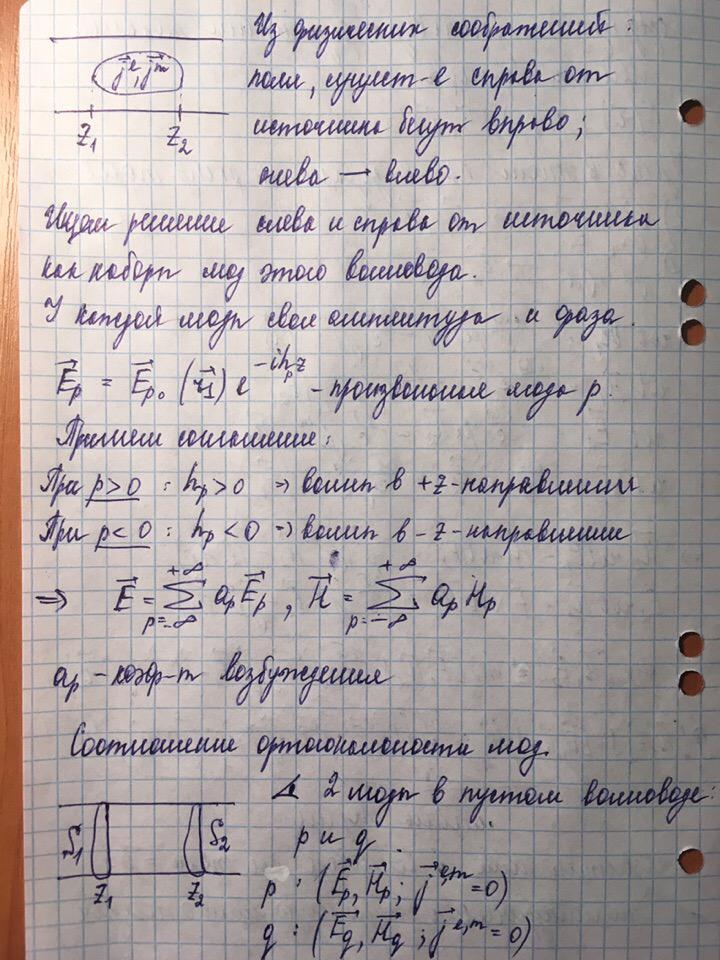 Из физических соображений:
j⃗ᵉ, j⃗ᵐ
поля, сущест-е справа от
z₁ z₂
источника бегут вправо;
слева → влево.
Ищем решение слева и справа от источника
как наборы мод этого волновода.
У каждой моды своя амплитуда и фаза.
E⃗ₚ = E⃗ₚ₀ (r⃗⊥) e^{-ihₚz} - произвольная мода p.
Примем соглашение:
При p>0 : hₚ>0 ⇒ волны в +z-направлении
При p<0 : hₚ<0 ⇒ волны в -z-направлении
⇒ E⃗ = Σ_{p=-∞}^{+∞} aₚE⃗ₚ , H⃗ = Σ_{p=-∞}^{+∞} aₚHₚ
aₚ - коэф-т возбуждения
Соотношение ортогональности мод.
∡ 2 моды в пустом волноводе:
S₁ S₂ p и q.
z₁ z₂ p : (E⃗ₚ, H⃗ₚ ; j⃗^{e,m}=0)
q : (E⃗_q, H⃗_q ; j⃗^{e,m}=0)